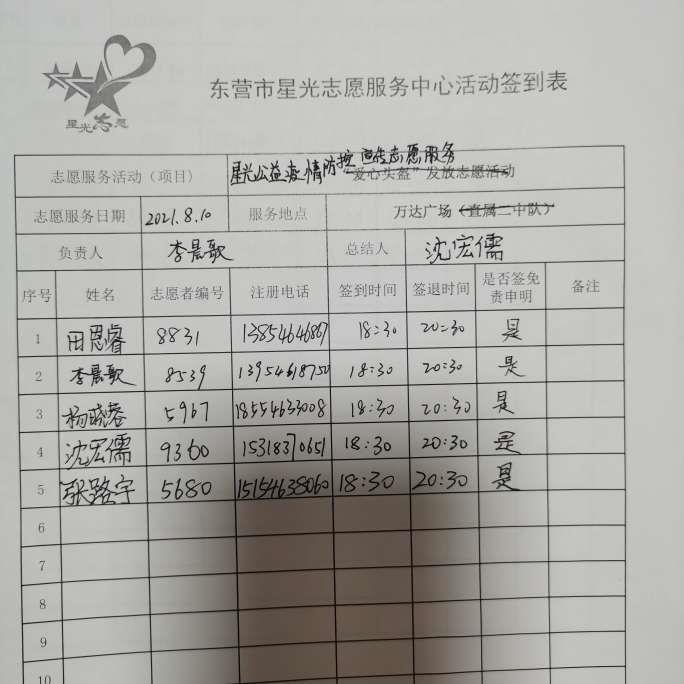 东营市星光志愿服务中心活动签到表
星光志愿
志愿服务活动（项目） 星光公益疫情防控宣传志愿服务
“爱心头盔”发放志愿活动
志愿服务日期 2021.8.10 服务地点 万达广场（直属二中队）
负责人 李晨歌 总结人 沈宏儒
序号 姓名 志愿者编号 注册电话 签到时间 签退时间 是否签免责申明 备注
1 田恩睿 8831 13854646867 18:30 20:30 是
2 李晨歌 8539 13954618750 18:30 20:30 是
3 杨晓蓉 5967 18554633008 18:30 20:30 是
4 沈宏儒 9360 15318370651 18:30 20:30 是
5 张路宇 5680 15154638060 18:30 20:30 是
6
7
8
9
10